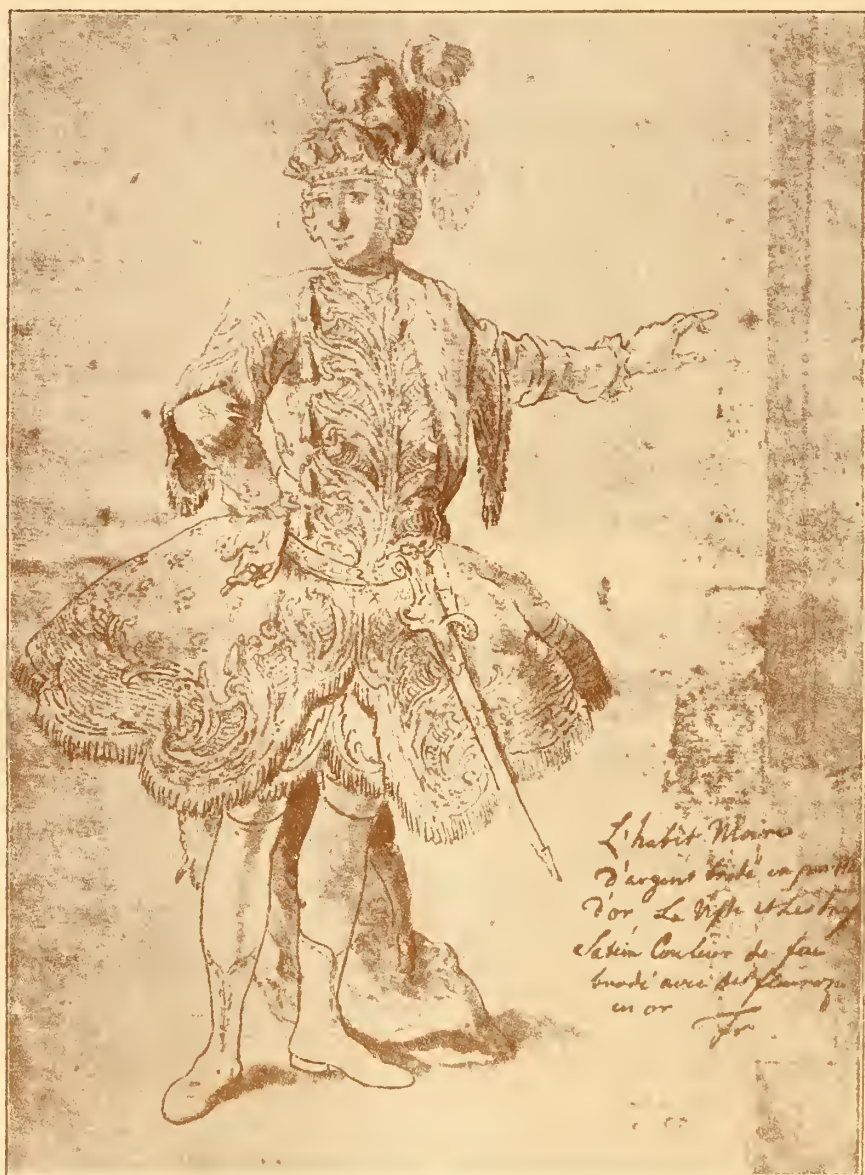 L'habit Moire
d'argent brodé en
d'or La Veste et Les
Satin Couleur de feu
brodé avec des
en or